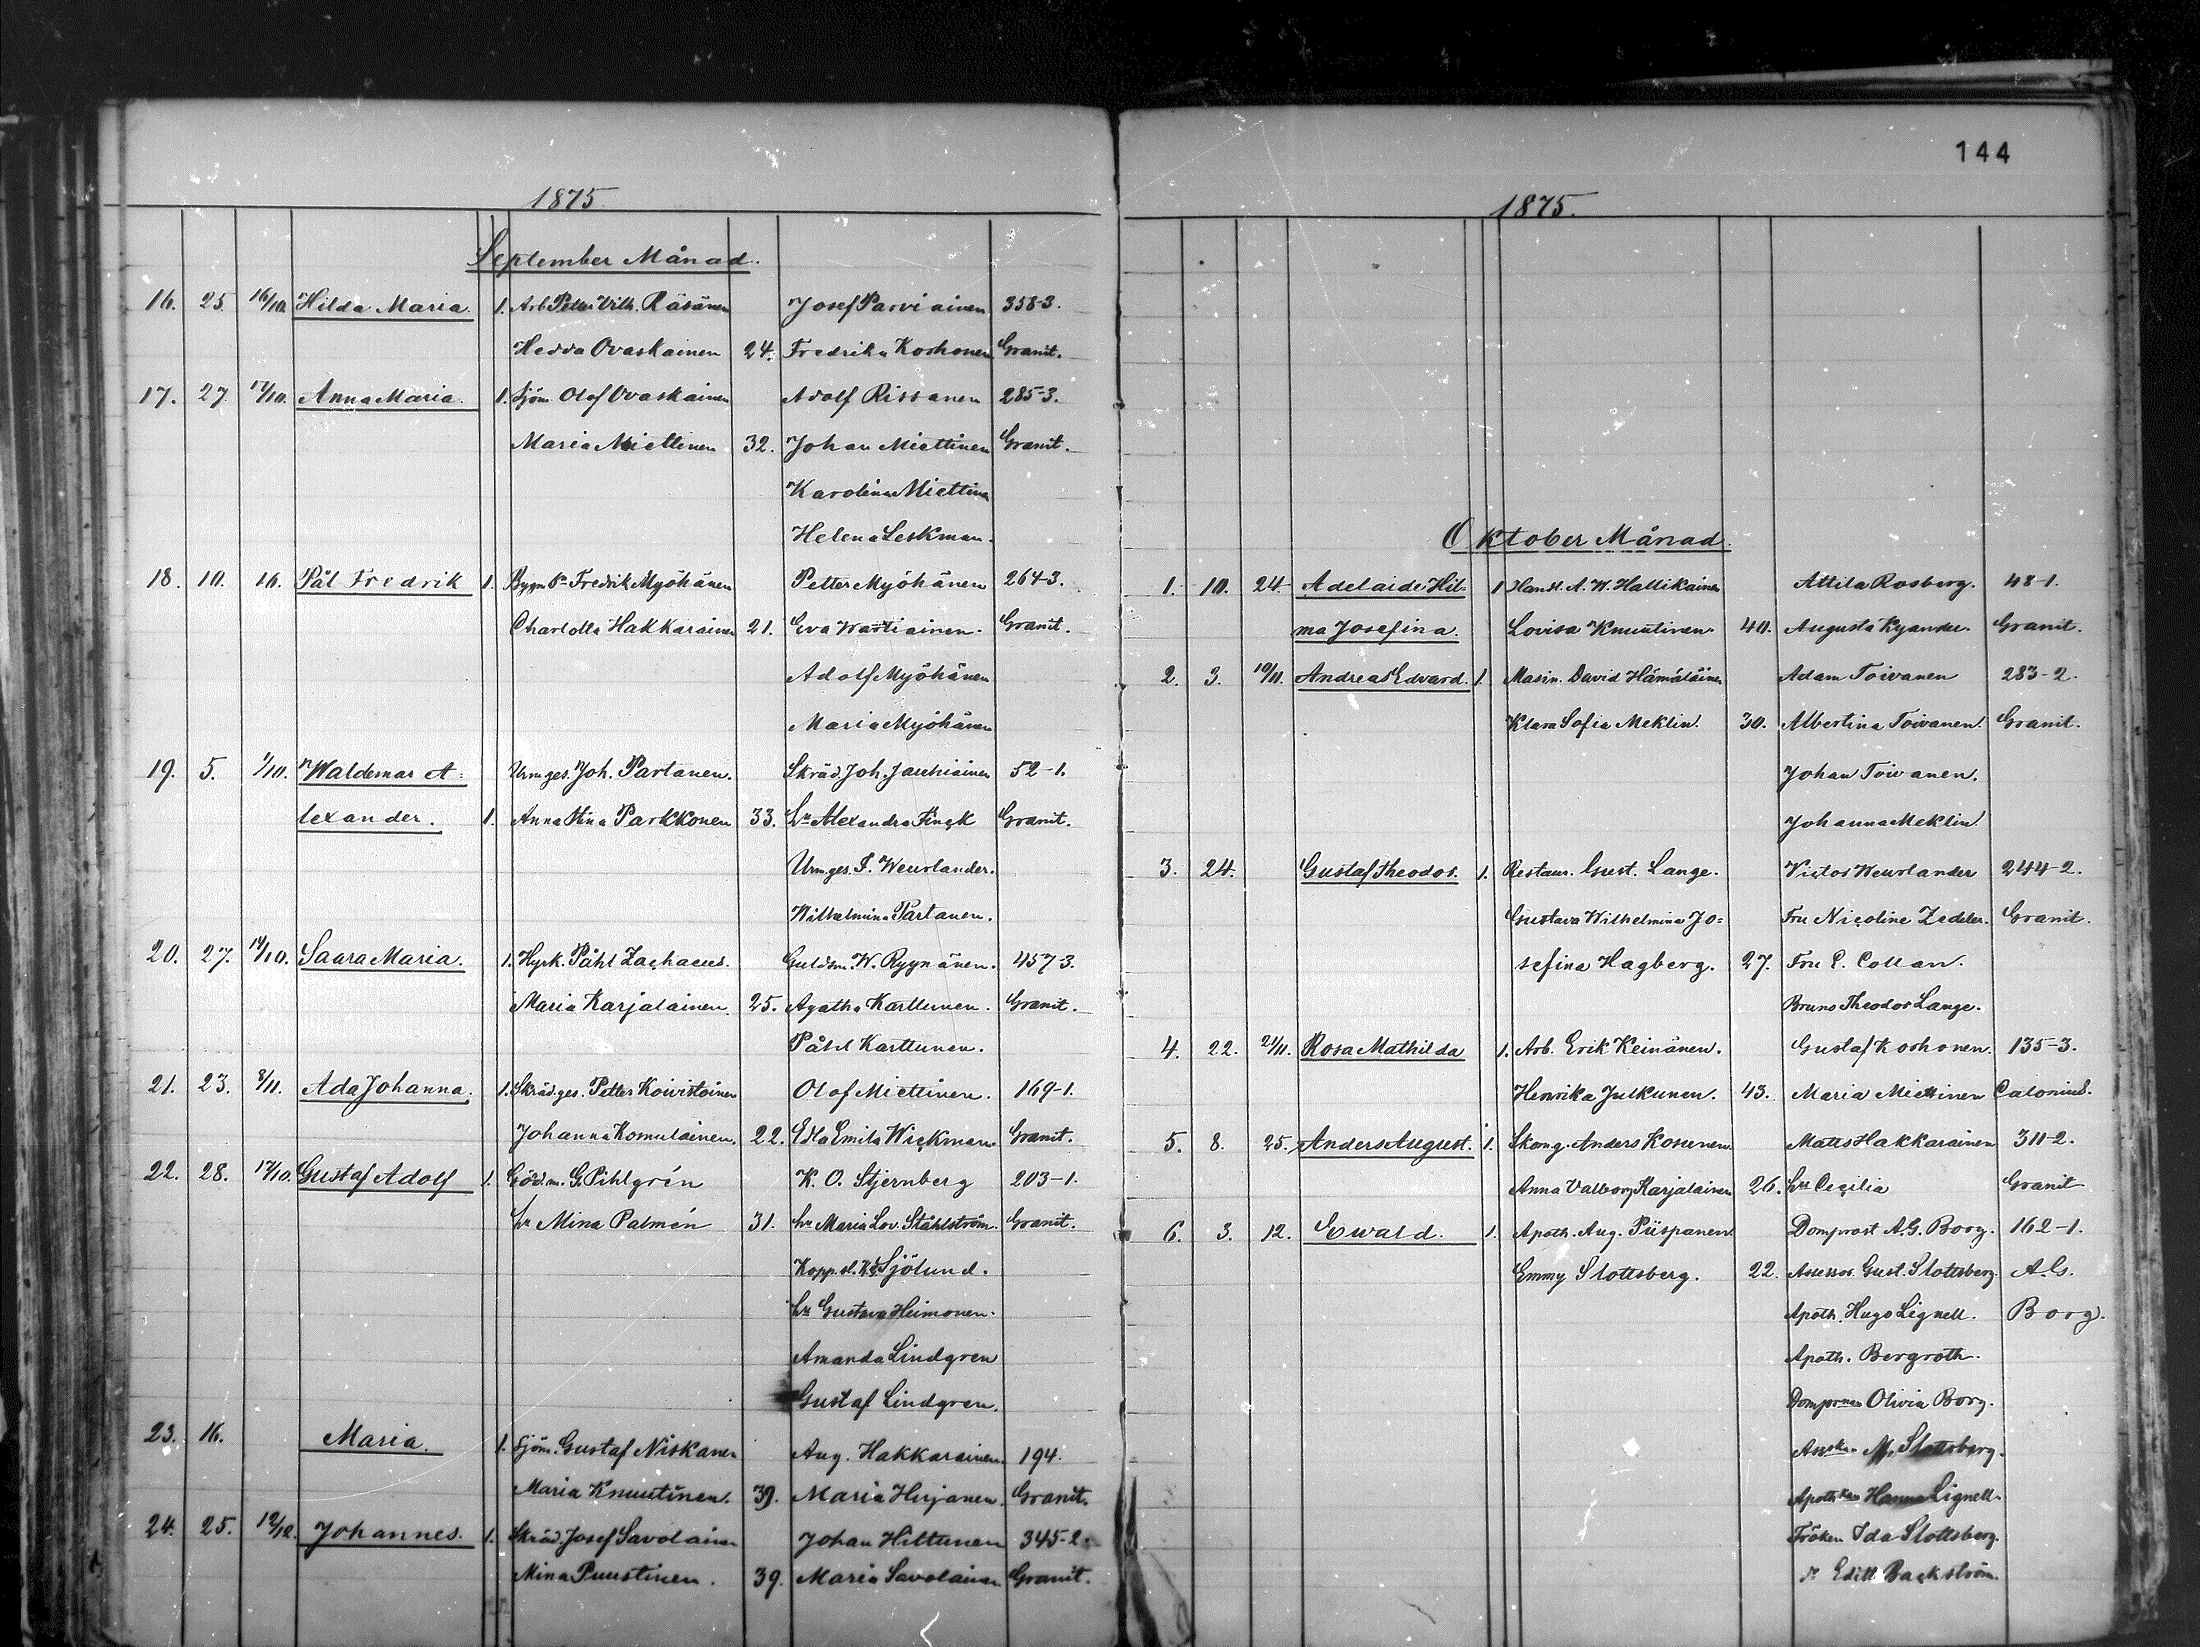 1875
September Månad.
16. 25. 16/10. Hilda Maria. 1. Arb. Petter Vilh. Räsänen Josef Parviainen 358-3.
Hedda Ovaskainen 24. Fredrika Korhonen Granit.
17. 27. 17/10. Anna Maria. 1. Sjöm. Olof Ovaskainen Adolf Rissanen 285-3.
Maria Miettinen 32. Johan Miettinen Granit.
Karolina Miettinen
Helena Leskman.
18. 10. 16. Pål Fredrik 1. Fredrik Myöhänen Petter Myöhänen 264-3.
Charlotta Hakkarainen 21. Eva Wartiainen. Granit.
Adolf Myöhänen
Maria Myöhänen
19. 5. 1/10. Waldemar A- Urm.ges. Joh. Partanen. Skräd. Joh. 52-1.
lexander. 1. Anna Stina Parkkonen 33. hu Alexandra Finck Granit.
Urm.ges. J. Weurlander.
Wilhelmina Partanen.
20. 27. 14/10. Saara Maria. 1. Hyrk. Påhl Zachaeus. Guldsm. W. Ryynänen. 457-3.
Maria Karjalainen. 25. Agatha Karttunen. Granit.
Påhl Karttunen.
21. 23. 8/11. Ada Johanna. 1. Skräd.ges. Petter Koivistoinen Olof Miettinen. 169-1.
Johanna Komulainen. 22. Edla Emila Wickman Granit.
22. 28. 17/10. Gustaf Adolf 1. G. Pihlgrén K. O. Stjernberg 203-1.
hu Mina Palmén 31. hu Maria Lov. Ståhlström. Granit.
Sjölund.
hu Gustava Heimonen.
Amanda Lindgren
Gustaf Lindgren.
23. 16. Maria. 1. Sjöm. Gustaf Niskanen Aug. Hakkarainen 194.
Maria Knuutinen. 39. Maria Hirjanen. Granit.
24. 25. 12/12. Johannes. 1. Skräd. Josef Savolainen Johan Hiltunen 345-2.
Mina Puustinen. 39. Maria Savolainen Granit.
144
1875.
Oktober Månad.
1. 10. 24. Adelaide Hil- 1 Handl. A. W. Hallikainen Attila Rosberg. 48-1.
ma Josefina. Lovisa Knuutinen 40. Augusta Kyander. Granit.
2. 3. 10/11. Andreas Edvard. 1. Masin. David Hämäläinen Adam Toivanen 283-2.
Klara Sofia Meklin. 30. Albertina Toivanen. Granit.
Johan Toivanen.
Johanna Meklin.
3. 24. Gustaf Theodor. 1. Restaur. Gust. Lange. Victor Weurlander 244-2.
Gustava Wilhelmina Jo- Fru Nicoline Zedeler. Granit.
sefina Hagberg. 27. Fru C. Collan.
Bruno Theodor Lange.
4. 22. 21/11. Rosa Mathilda 1. Arb. Erik Keinänen. Gustaf Korhonen. 135-3.
Henrika Julkunen. 43. Maria Miettinen Calonius.
5. 8. 25. Anders August. 1. Skomg. Anders Kosunen Matts Hakkarainen 311-2.
Anna Valborg Karjalainen 26. hu Cecilia Granit
6. 3. 12. Ewald. 1. Apoth. Aug. Piispanen. Domprost A. G. Borg. 162-1.
Emmy Slottsberg. 22. Assessor Gust. Slottsberg. A. G.
Apoth. Hugo Lignell. Borg.
Apoth. Bergroth.
Olivia Borg.
M. Slottsberg.
Hanna Lignell.
Fröken Ida Slottsberg.
Edith Backström.